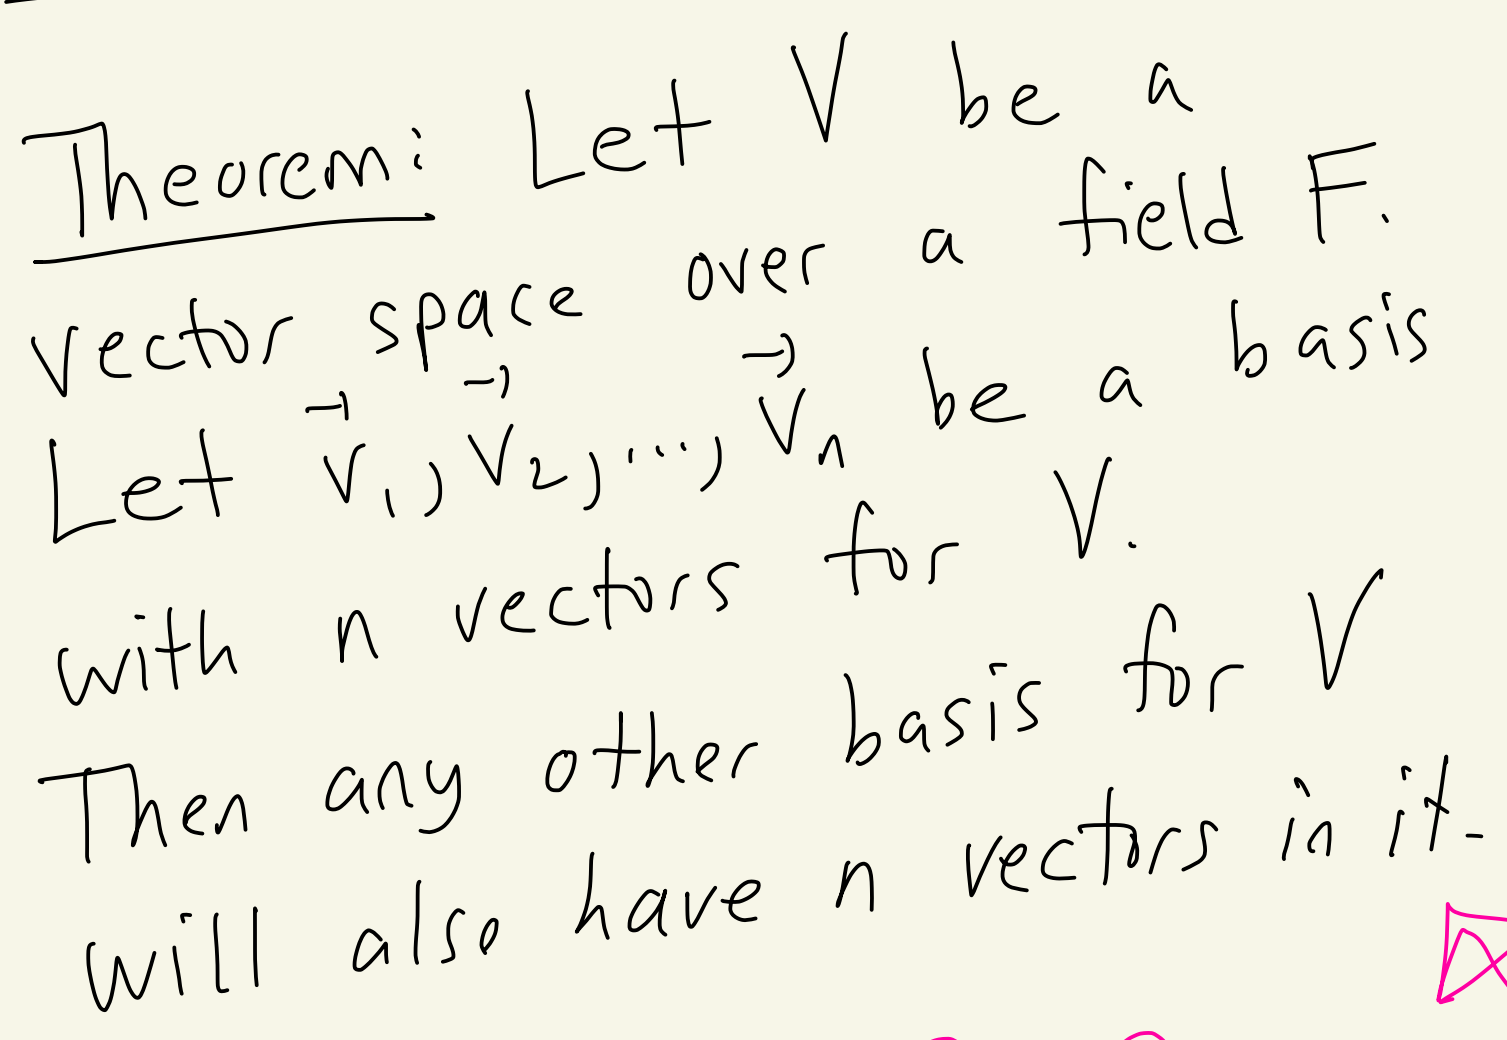 Theorem: Let V be a
vector space over a field F.
Let v⃗₁, v⃗₂, ..., v⃗ₙ be a basis
with n vectors for V.
Then any other basis for V
will also have n vectors in it.